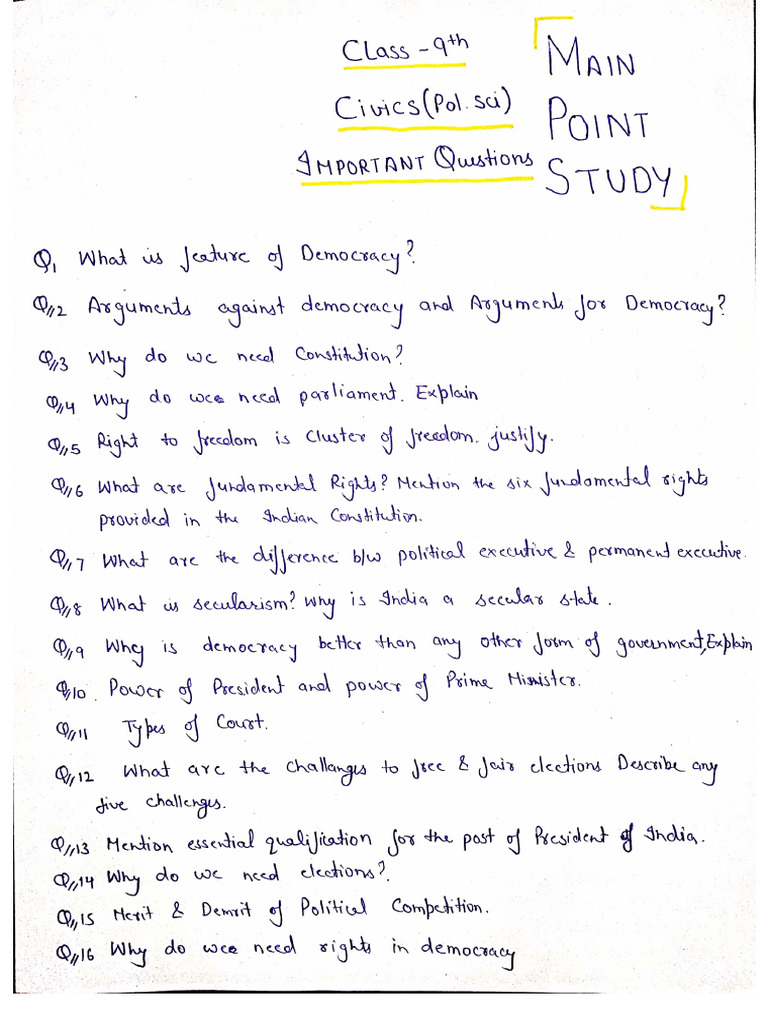 Class - 9th
Civics (Pol. sci)
IMPORTANT Questions
MAIN
POINT
STUDY
Q,1 What is feature of Democracy?
Q,,2 Arguments against democracy and Arguments for Democracy?
Q,,3 Why do we need Constitution?
Q,,4 Why do wee need parliament. Explain
Q,,5 Right to freedom is Cluster of freedom. justify.
Q,,6 What are fundamental Rights? Mention the six fundamental rights
provided in the Indian Constitution.
Q,,7 What are the difference b/w political executive & permanent executive.
Q,,8 What is secularism? Why is India a secular state.
Q,,9 Why is democracy better than any other form of government, Explain
Q,,10. Power of President and power of Prime Minister.
Q,,11 Types of Court.
Q,,12 What are the challanges to free & fair elections Describe any
five challenges.
Q,,13 Mention essential qualification for the post of President of India.
Q,,14 Why do we need elections?.
Q,,15 Merit & Demrit of Political Competition.
Q,,16 Why do wee need rights in democracy